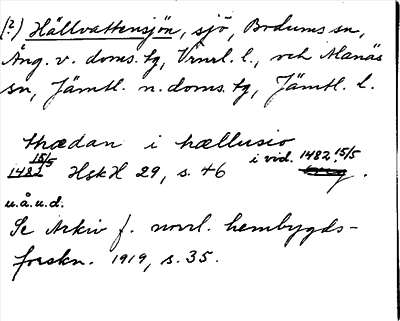 (?) Hällvattensjön, sjö, Bodums sn,
Ång. v. doms. tg, Vrnrl. l., och Alanäs
sn, Jämtl. n. doms. tg, Jämtl. l.
thædan i hællusio
1482 15/5 HskH 29, s. 46 i vid. 1482 15/5
u.å.u.d.
Se Arkiv f. norrl. hembygds-
forskn. 1919, s. 35.